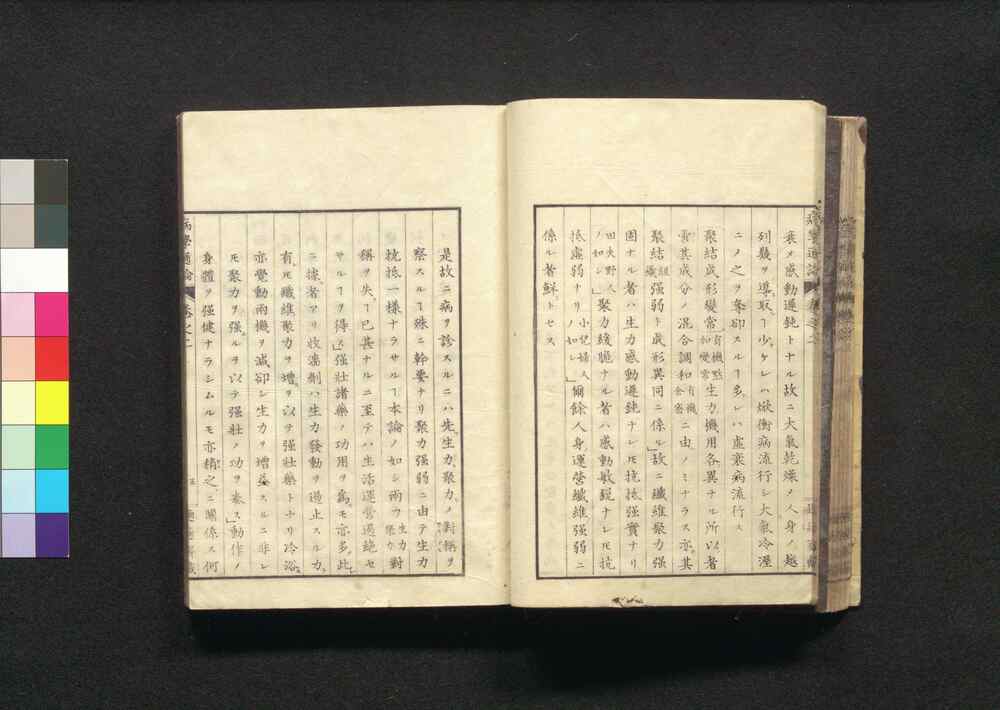 衰メ感動遲鈍トナル故ニ大氣乾燥メ人身ノ越
列幾ヲ導取スルヿ少ケレハ焮衝病流行シ大氣冷溼
ニメ之ヲ奪却スルヿ多ケレハ虛衰病流行ス
聚結成形變常有機㸃和變常生力機用各異ナル所以者
實其成分ノ混合調和有機ニ由ノミナラス亦其
聚結組織强弱ト成形異同ニ係ル故ニ纖維聚力强
固ナル者ハ生力感動遲鈍ナレ𪜈抗抵强實ナリ
田夫野人ノ如シ聚力緩脆ナル者ハ感動敏銳ナレ𪜈抗
抵虛弱ナリ小兒婦人ノ如シ爾餘人身運營纖維强弱ニ
係ル者鮮トセス
是故ニ病ヲ診スルニハ先生力聚力ノ對稱ヲ
察スルヿ殊ニ幹要ナリ聚力强弱ニ由テ生力
抗抵一樣ナラサルヿ本論ノ如シ兩力生力聚力對
稱ヲ失フヿ已甚ナルニ至テハ生活運營過絶セ
サルヿヲ得ス强壯諸藥ノ功用ヲ爲モ亦多此
ニ據者アリ收濇劑ハ生力發動ヲ遏止スルカ
有𪜈纖維聚力ヲ增ヲ以テ强壯藥トナリ冷浴
亦覺動兩機ヲ減却シ生力ヲ增益スルニ非レ
𪜈聚力ヲ强スルヲ以テ强壯ノ功ヲ奏ス動作ノ
身體ヲ强健ナラシムルモ亦精之ニ關係ス何
病學通論
卷之二